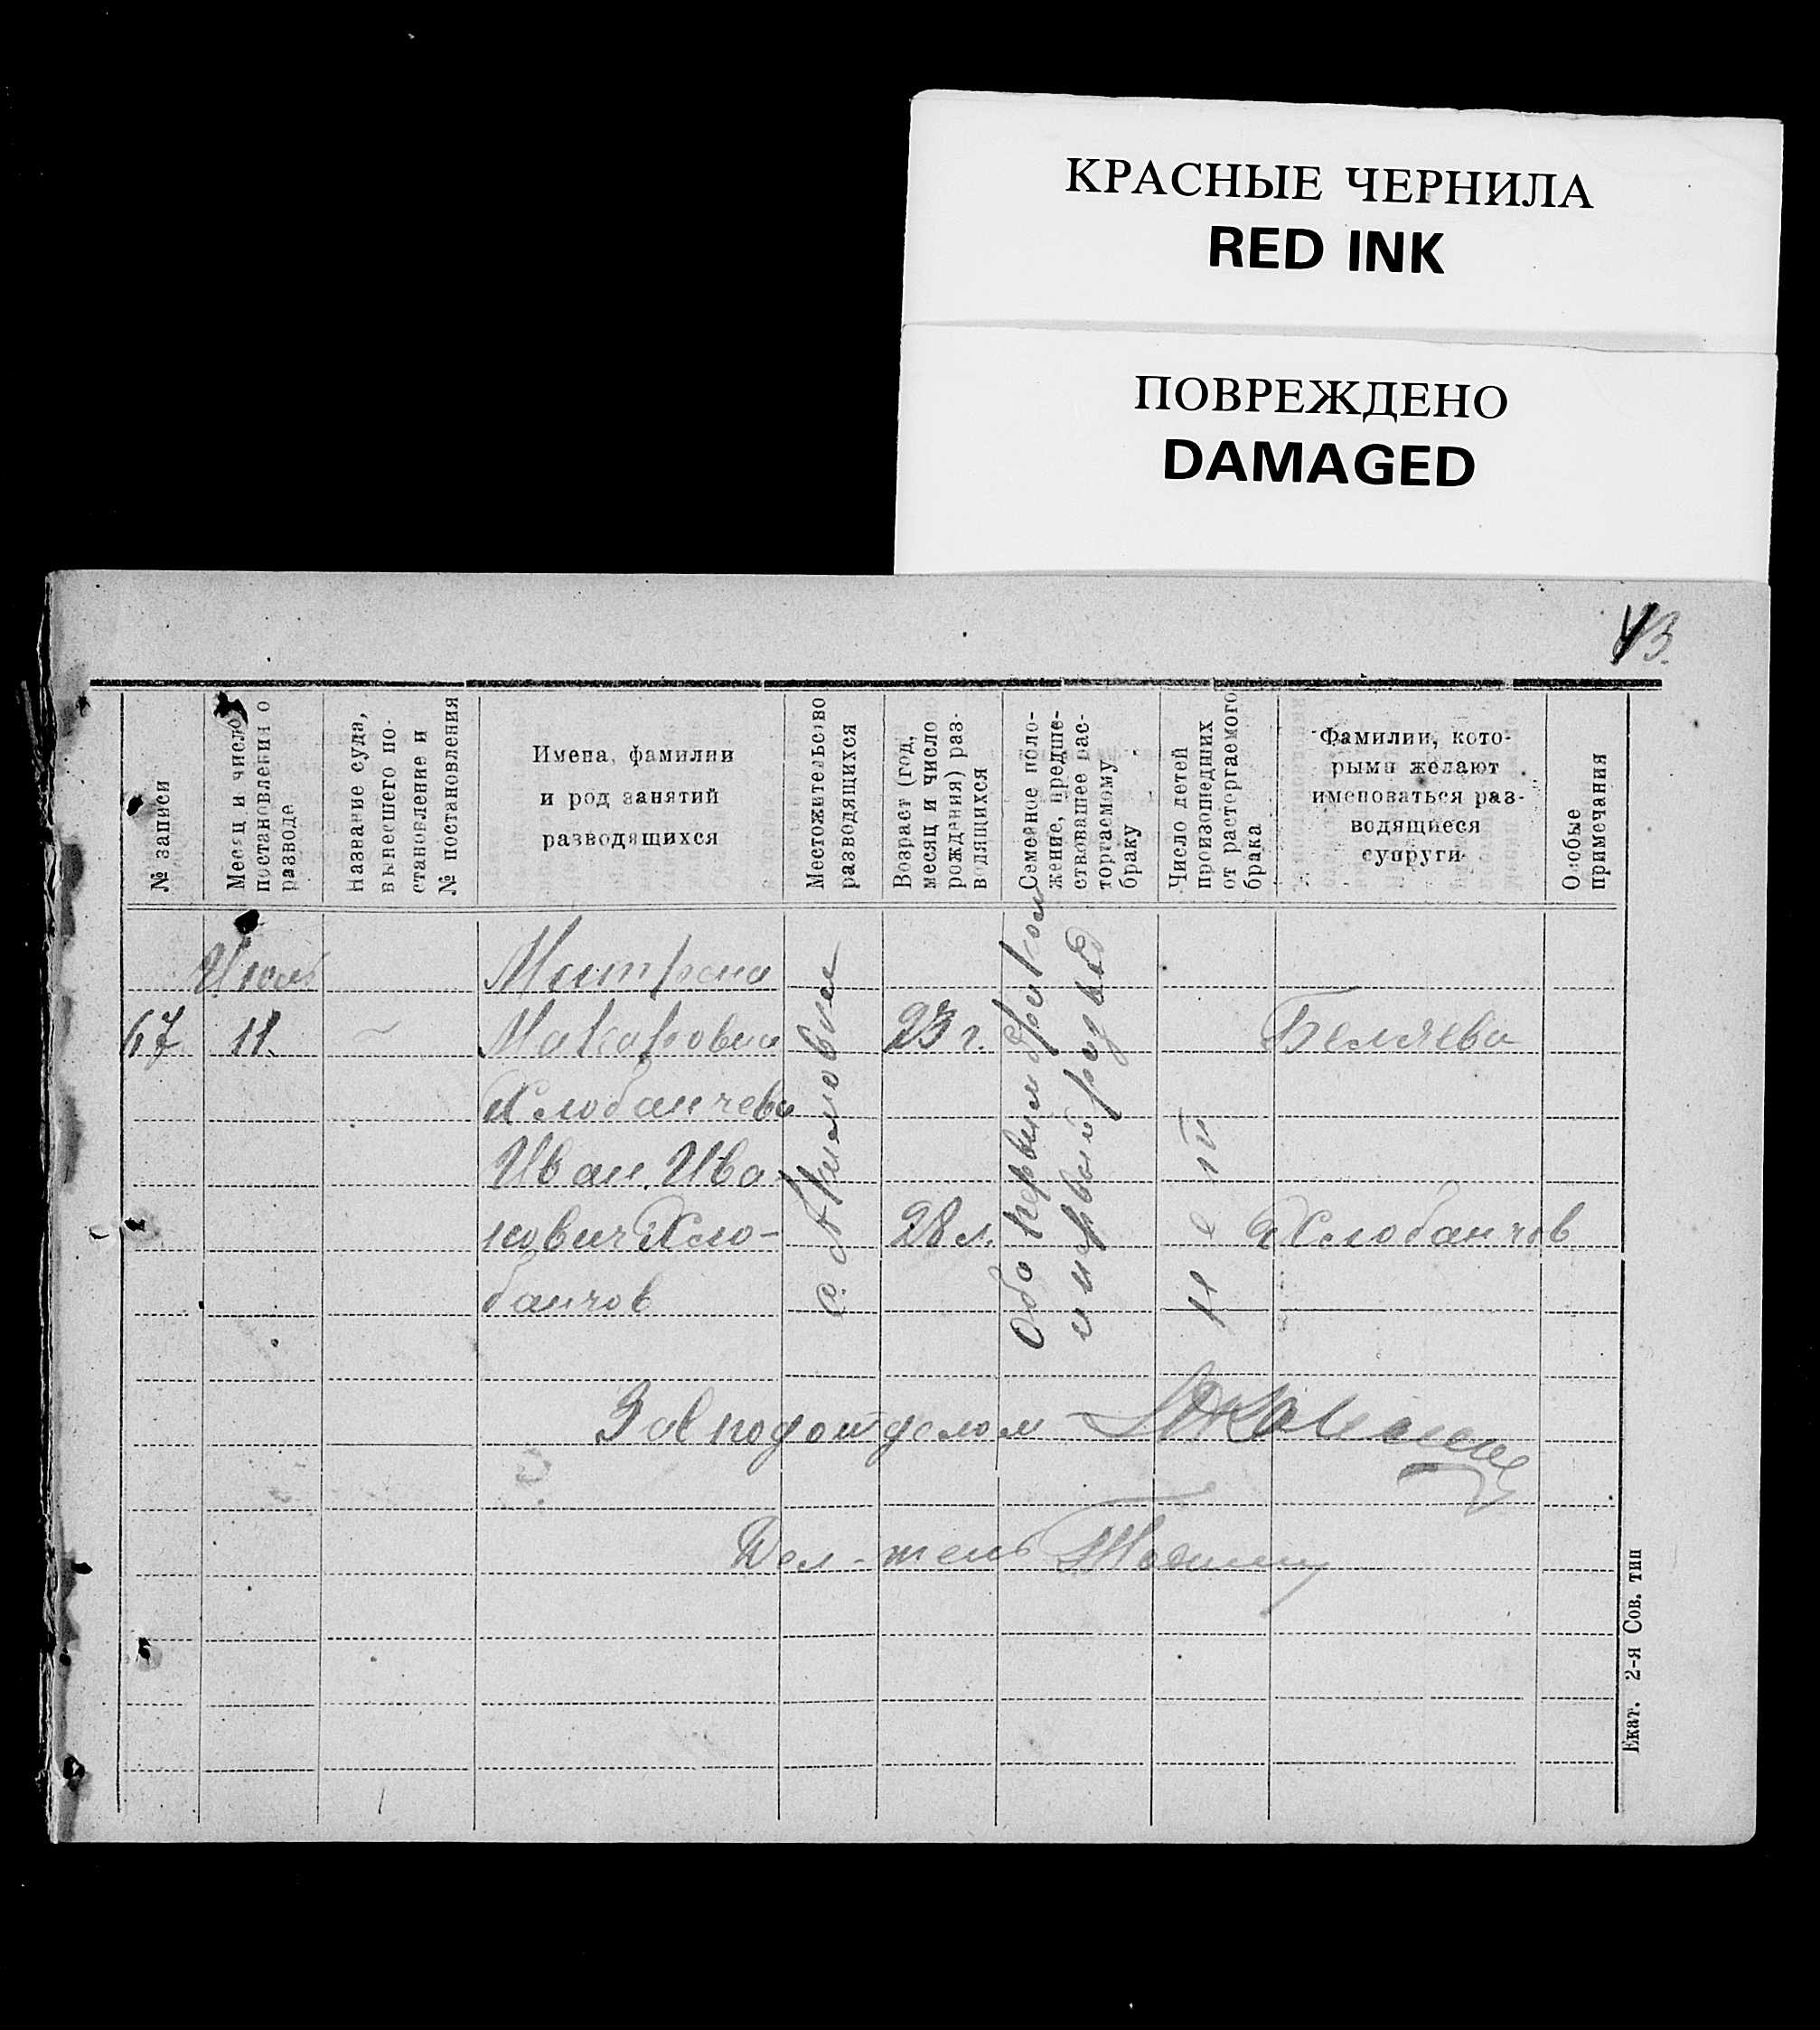 КРАСНЫЕ ЧЕРНИЛА
RED INK
ПОВРЕЖДЕНО
DAMAGED
43.
№ записи
Месяц и число
постановления о
разводе
Название суда,
вынесшего по-
становление и
№ постановления
Имена, фамилии
и род занятий
разводящихся
Местожительство
разводящихся
Возраст (год,
месяц и число
рождения) раз-
водящихся
Семейное поло-
жение, предше-
ствовавшее рас-
торгаемому
браку
Число детей
произошедших
от расторгаемого
брака
Фамилии, кото-
рыми желают
именоваться раз-
водящиеся
супруги
Особые
примечания
Июль
67
11.
Митрена
Макаровна
Хлобанчева
Иван Ива-
нович Хло-
банчов
с.
23 г.
28 л.
Оба первым браком
и первый развод
Нет
Беляева
Хлобанчов
Зав подотделом
Дел-тель
Екат. 2-я Сов. тип